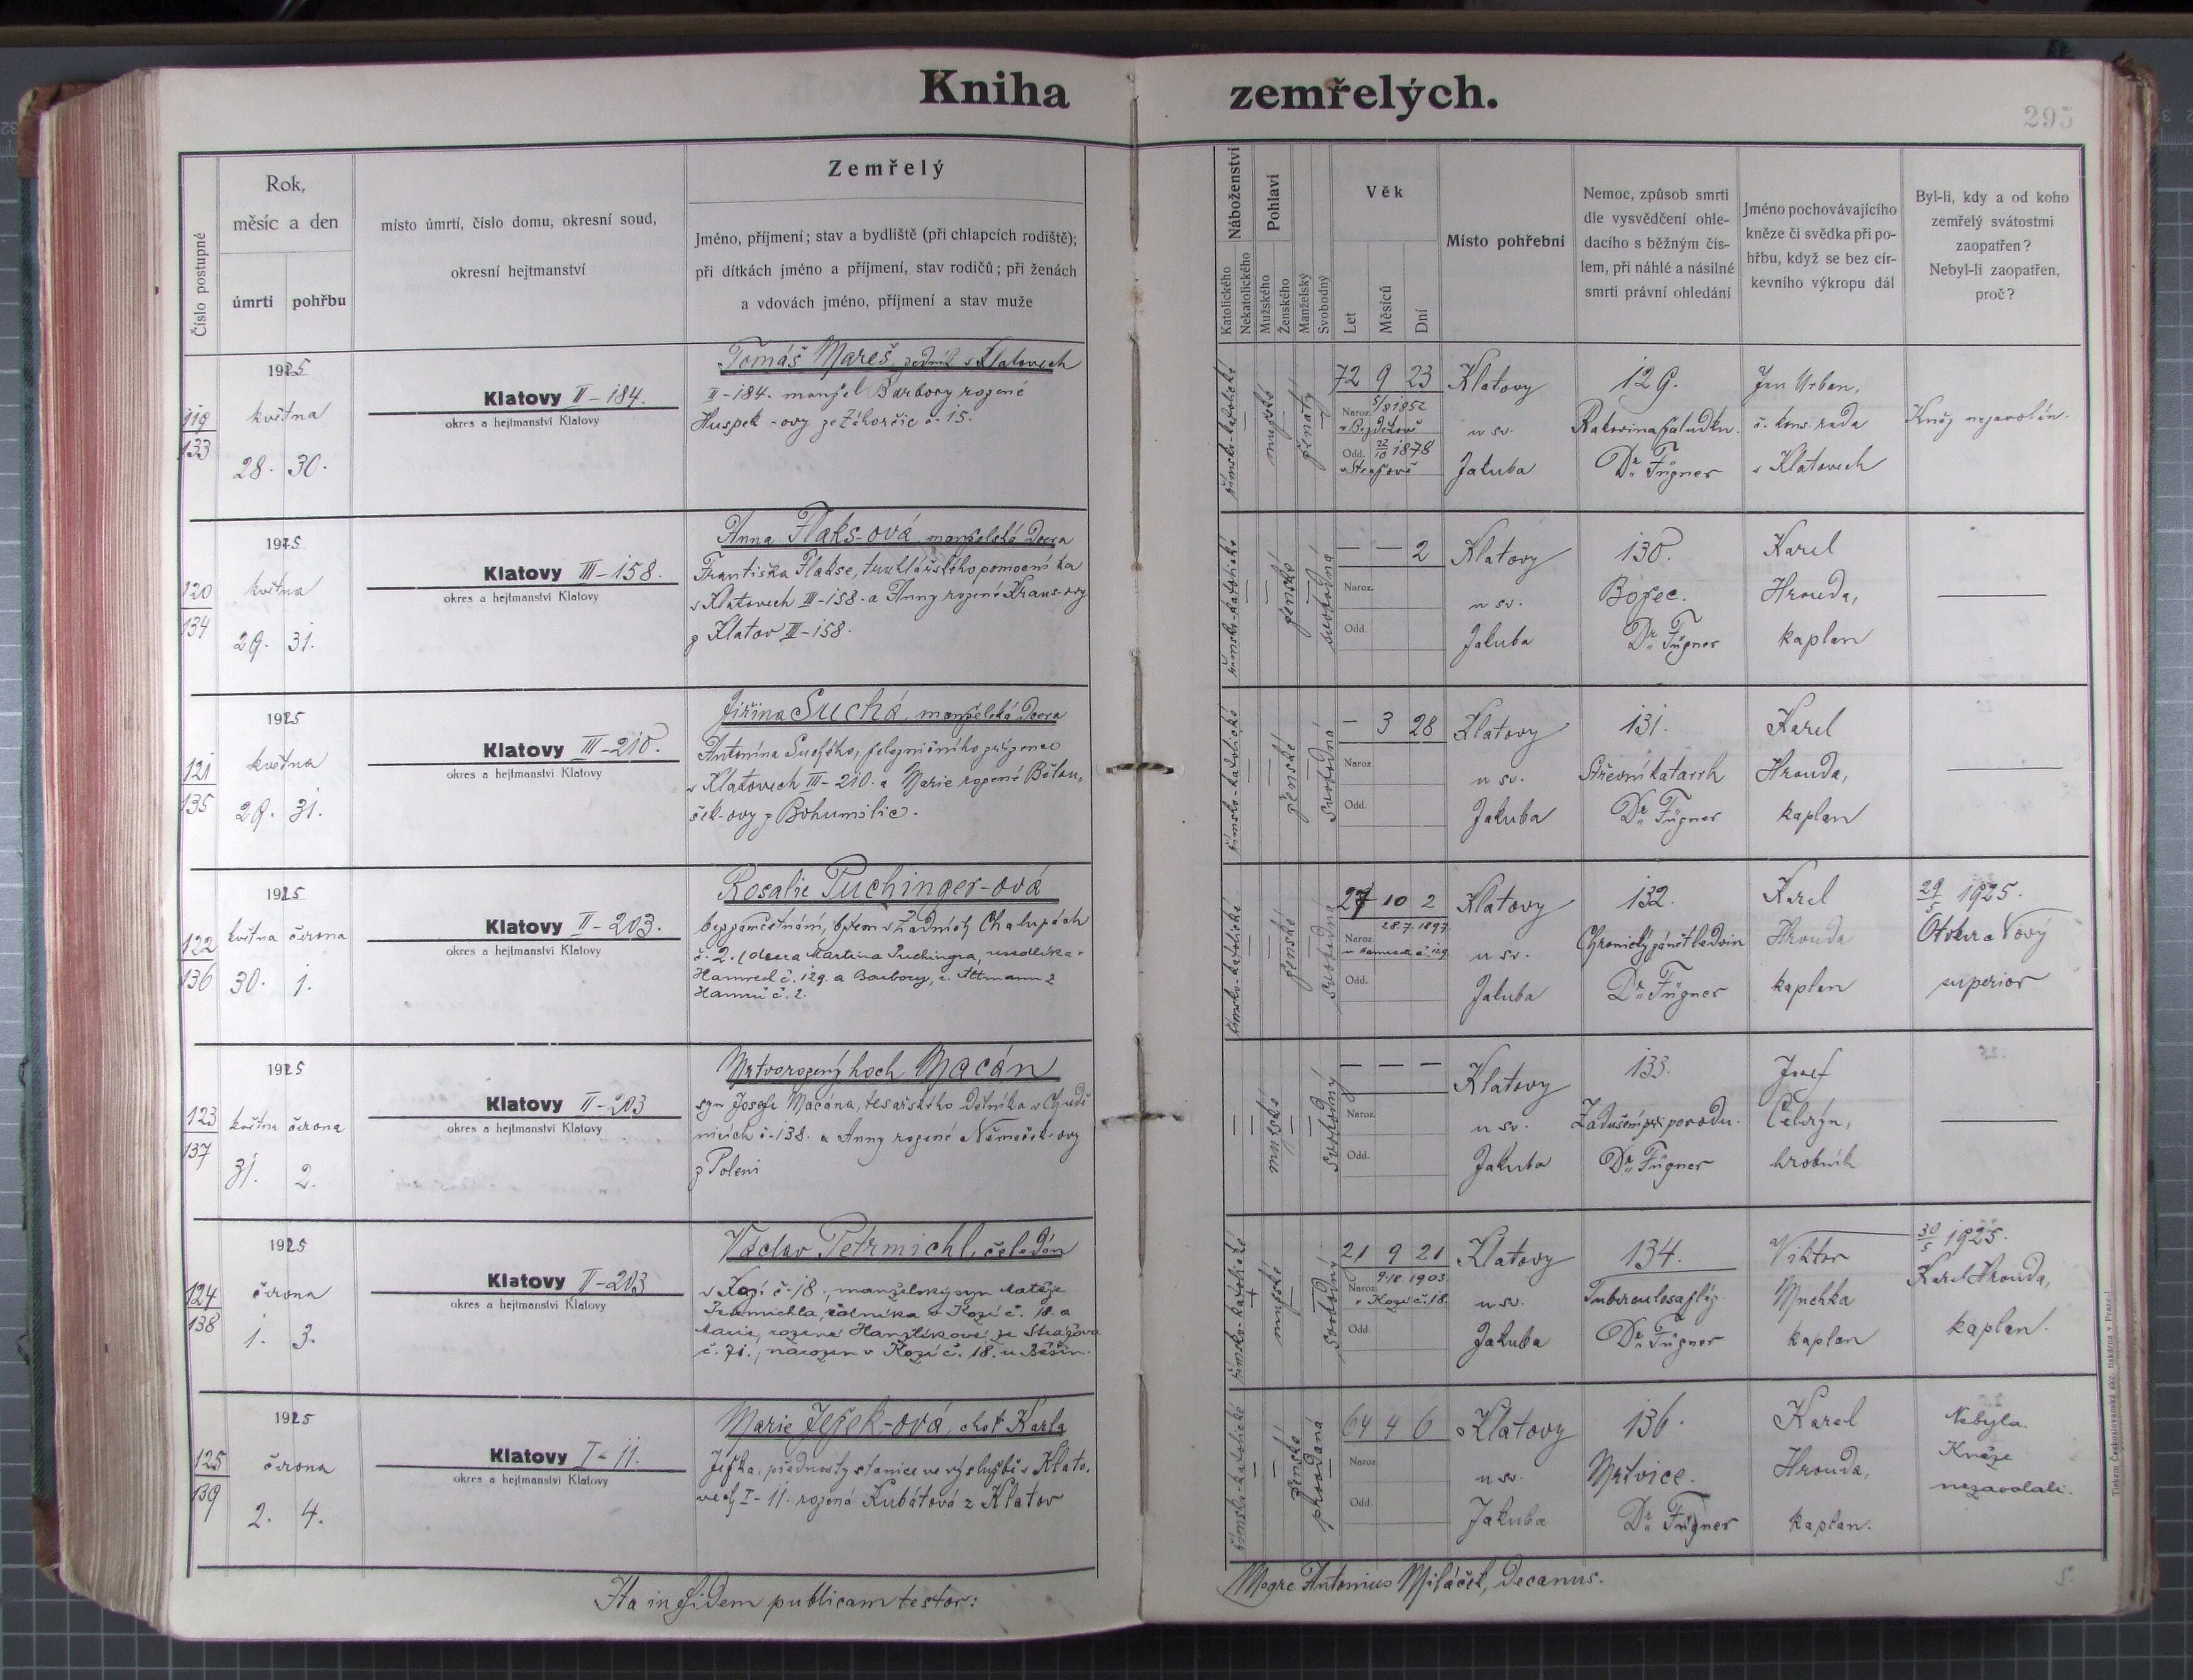 Kniha zemřelých.
295
Číslo postupné
Rok,
měsíc a den
úmrtí
pohřbu
místo úmrtí, číslo domu, okresní soud,
okresní hejtmanství
Zemřelý
Jméno, příjmení; stav a bydliště (při chlapcích rodiště);
při dítkách jméno a příjmení, stav rodičů; při ženách
a vdovách jméno, příjmení a stav muže
Náboženství
Katolického
Nekatolického
Pohlaví
Mužského
Ženského
Manželský
Svobodný
Věk
Let
Měsíců
Dní
Místo pohřební
Nemoc, způsob smrti
dle vysvědčení ohle-
dacího s běžným čís-
lem, při náhlé a násilné
smrti právní ohledání
Jméno pochovávajícího
kněze či svědka při po-
hřbu, když se bez cír-
kevního výkropu dál
Byl-li, kdy a od koho
zemřelý svátostmi
zaopatřen?
Nebyl-li zaopatřen,
proč?
119
133
1925
května
28. 30.
Klatovy II-184.
okres a hejtmanství Klatovy
Tomáš Mareš, zedník v Klatovech
II-184. manžel Barbory rozené
Huspek-ovy ze Záhorčic č. 15.
římsko-katolické
mužské
ženatý
72 9 23
Naroz. 5/8 1852
v Bezděkově
Odd. 22/10 1878
v Strážově
Klatovy
u sv.
Jakuba
129.
Rakovina žaludku.
Dr. Fügner
Jan Urban,
b. kons. rada
v Klatovech
Kněz nezavolán.
120
134
1925
května
29. 31.
Klatovy III-158.
okres a hejtmanství Klatovy
Anna Flaks-ová, manželská dcera
Františka Flakse, truhlářského pomocníka
v Klatovech III-158. a Anny rozené Kraus-ovy
z Klatov III-158.
římsko-katolické
ženské
svobodná
— — 2
Naroz.
Odd.
Klatovy
u sv.
Jakuba
130.
Božec.
Dr. Fügner
Karel
Hrouda,
kaplan
121
135
1925
května
29. 31.
Klatovy III-210.
okres a hejtmanství Klatovy
Jiřina Suchá, manželská dcera
Antonína Suchého, železničního zřízence
v Klatovech III-210. a Marie rozené Bělou-
šek-ovy z Bohumilic.
římsko-katolické
ženské
svobodná
— 3 28
Naroz.
Odd.
Klatovy
u sv.
Jakuba
131.
Střevní katarrh
Dr. Fügner
Karel
Hrouda,
kaplan
122
136
1925
května června
30. 1.
Klatovy II-203.
okres a hejtmanství Klatovy
Rosalie Puchinger-ová
bez zaměstnání, bytem v Zadních Chalupách
č. 2. (dcera Martina Puchingra, usedlíka v
Hamrech č. 129. a Barbory, r. Altmann z
Hamrů č. 2.
římsko-katolické
ženské
svobodná
27 10 2
28.7.1897.
Naroz. v Hamrech č. 129.
Odd.
Klatovy
u sv.
Jakuba
132.
Chronický zánět ledvin
Dr. Fügner
Karel
Hrouda
kaplan
29/5 1925.
superior
123
137
1925
května června
31. 2.
Klatovy II-203
okres a hejtmanství Klatovy
Mrtvorozený hoch Macán
syn Josefa Macána, tesařského dělníka v Chudě-
nicích č. 138. a Anny rozené Němeček-ovy
z Poleni
mužské
svobodný
— — —
Naroz.
Odd.
Klatovy
u sv.
Jakuba
133.
Zadušení při porodu.
Dr. Fügner
Josef
hrobník
124
138
1925
června
1. 3.
Klatovy II-203
okres a hejtmanství Klatovy
Václav Petrmichl, čeledín
v Kozí č. 18., manželský syn Matěje
Petrmichla, rolníka v Kozí č. 18. a
Marie, rozené Hanzlíkové ze Strážova
č. 71., narozen v Kozí č. 18. u Běšin.
římsko-katolické
mužské
svobodný
21 9 21
1903
Naroz. v Kozí č. 18.
Odd.
Klatovy
u sv.
Jakuba
134.
Tuberculosa plic.
Dr. Fügner
Viktor
kaplan
30/5 1925.
Karel Hrouda,
kaplan.
125
139
1925
června
2. 4.
Klatovy I-11.
okres a hejtmanství Klatovy
Marie Ježek-ová, choť Karla
Ježka, přednosty stanice ve výslužbě v Klato-
vech I-11. rozená Kubátová z Klatov
římsko-katolické
ženské
provdaná
64 4 6
Naroz.
Odd.
Klatovy
u sv.
Jakuba
136.
Mrtvice.
Dr. Fügner
Karel
Hrouda,
kaplan.
Nebyla.
Kněze
nezavolali.
Ita in fidem publicam testor:
Antonius Miláček, decanus.